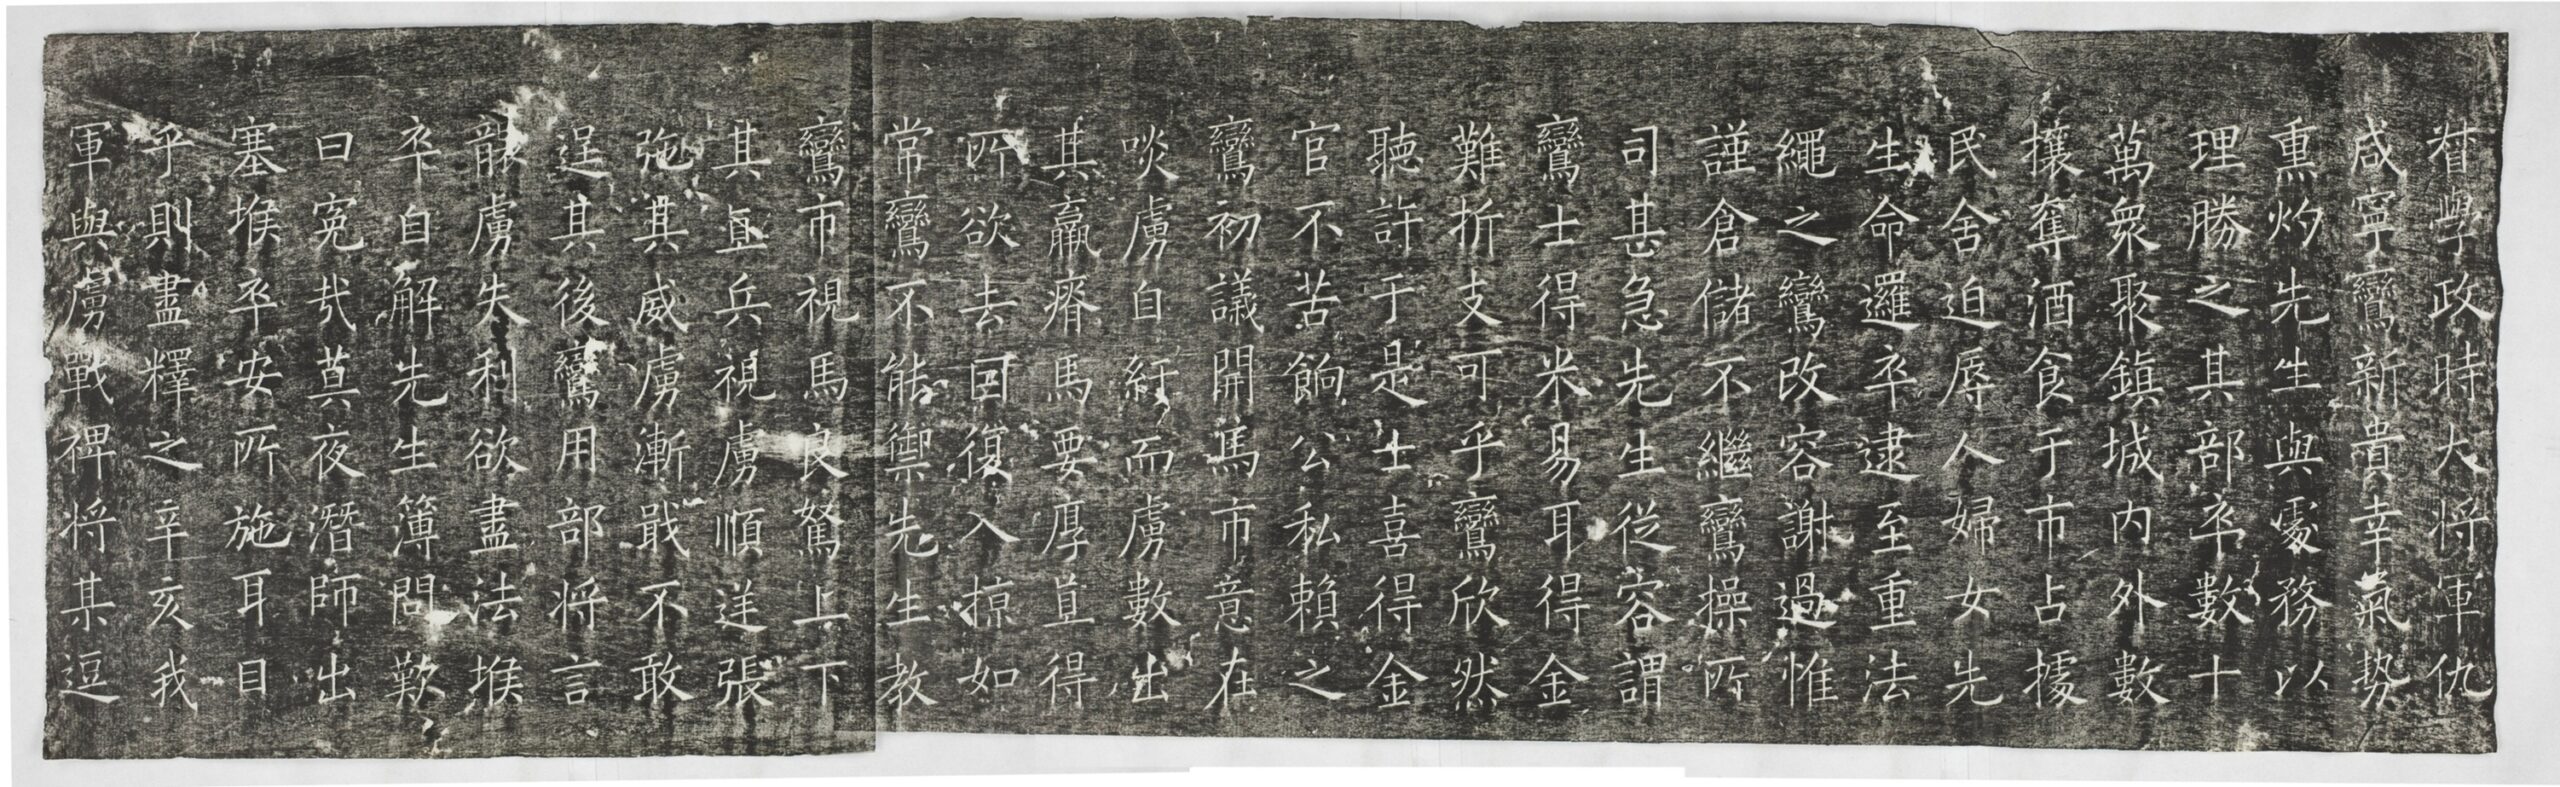 督學政時大将軍仇
咸寧鸞新貴幸氣勢
熏灼先生與處務以
理勝之其部卒數十
萬衆聚鎮城内外數
攘奪酒食于市占擾
民舍迫辱人婦女先
生命邏卒逮至重法
繩之鸞改容謝過惟
謹倉儲不繼鸞操所
司甚急先生従容謂
鸞士得米易耳得金
難折支可乎鸞欣然
聽許于是士喜得金
官不苦餉公私賴之
鸞初議開馬市意在
啖虜自紓而虜數出
其羸瘠馬要厚直得
所欲去回復入掠如
常鸞不能禦先生教
鸞市視馬良駑上下
其直兵視虜順逆張
弛其威虜漸戢不敢
逞其後鸞用部将言
襲虜失利欲盡法堠
卒自解先生簿問歎
曰冤哉莫夜潛師出
塞堠卒安所施耳目
乎則盡釋之辛亥我
軍與虜戰裨将某逗